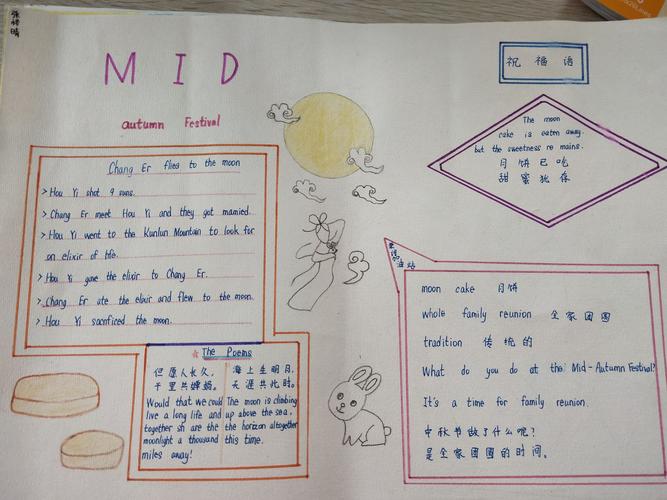 M I D
autumn Festival
Chang Er flies to the moon
> Hou Yi shot 9 suns.
> Chang Er meet Hou Yi and they got mamied.
> Hou Yi went to the Kunlun Mountain to look for
an elixir of life.
> Hou Yi gave the elixir to Chang Er.
> Chang Er ate the elixir and flew to the moon.
> Hou Yi sacrificed the moon.
The Poems
但愿人长久,
千里共婵娟。
Would that we could
live a long life and
together sh are the
moonlight a thousand
miles away!
海上生明月,
天涯共此时。
The moon is climbing
up above the sea,
the horizon altogether
this time.
祝福语
The moon
cake is eaten away.
but the sweetness re mains.
月饼已吃
甜蜜犹存
moon cake 月饼
whole family reunion 全家团圆
tradition 传统的
What do you do at the Mid-Autumn Festival?
It's a time for family reunion.
中秋节做了什么呢?
是全家团圆的时间。